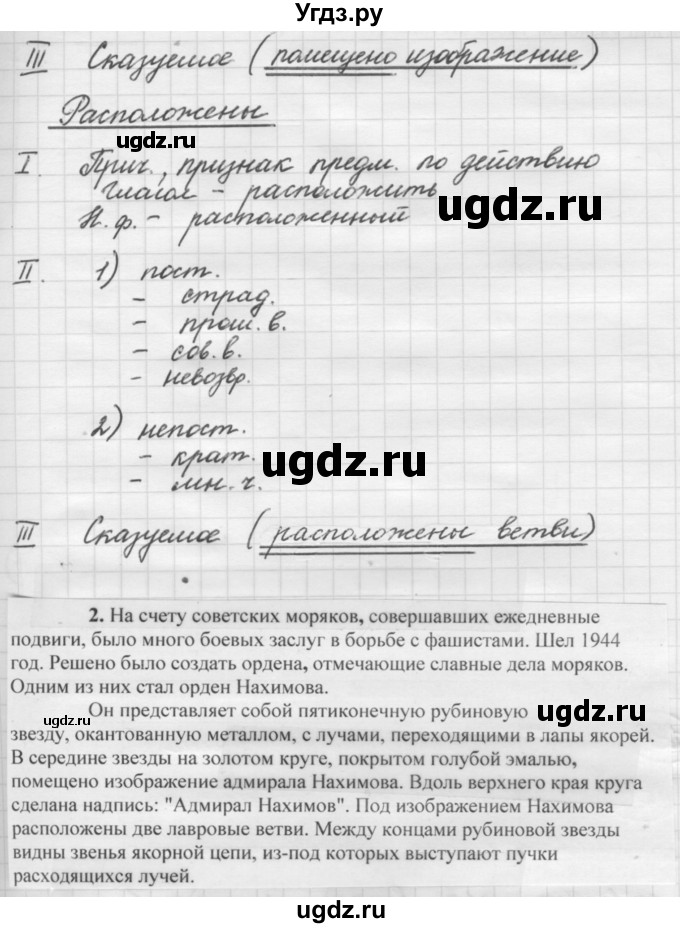 Угдз.ру
III Сказуемое (помещено изображение)
Расположены
ugdz.ru
I. Прич., признак предм. по действию
Глагол - расположить
ugdz.ru
Н. ф. - расположенный
II. 1) пост.
- страд.
- прош. в.
ugdz.ru
- сов. в.
- невозвр.
2) непост.
- крат.
ugdz.ru
- мн. ч.
III Сказуемое (расположены ветви)
2. На счету советских моряков, совершавших ежедневные
ugdz.ru
подвиги, было много боевых заслуг в борьбе с фашистами. Шел 1944
год. Решено было создать ордена, отмечающие славные дела моряков.
Одним из них стал орден Нахимова.
Он представляет собой пятиконечную рубиновую
ugdz.ru
ugdz.ru
звезду, окантованную металлом, с лучами, переходящими в лапы якорей.
В середине звезды на золотом круге, покрытом голубой эмалью,
помещено изображение адмирала Нахимова. Вдоль верхнего края круга
сделана надпись: "Адмирал Нахимов". Под изображением Нахимова
расположены две лавровые ветви. Между концами рубиновой звезды
видны звенья якорной цепи, из-под которых выступают пучки
ugdz.ru
расходящихся лучей.
ugdz.ru